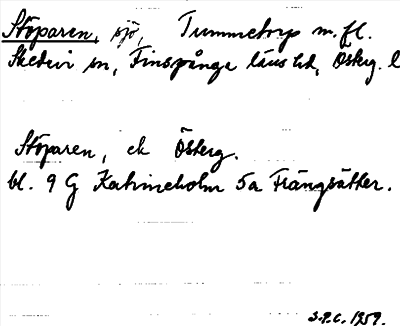 Stöparen, sjö, Tummetorp m.fl.
Skedevi sn, Finspånga läns hd, Österg. l
Stöparen, ek Österg.
bl. 9 G Katrineholm 5a Frängsätter.
S.P.C. 1959.